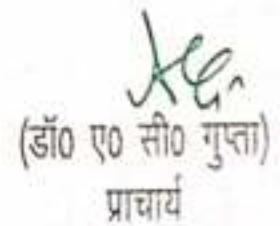 (डॉ0 ए0 सी0 गुप्ता)
प्राचार्य